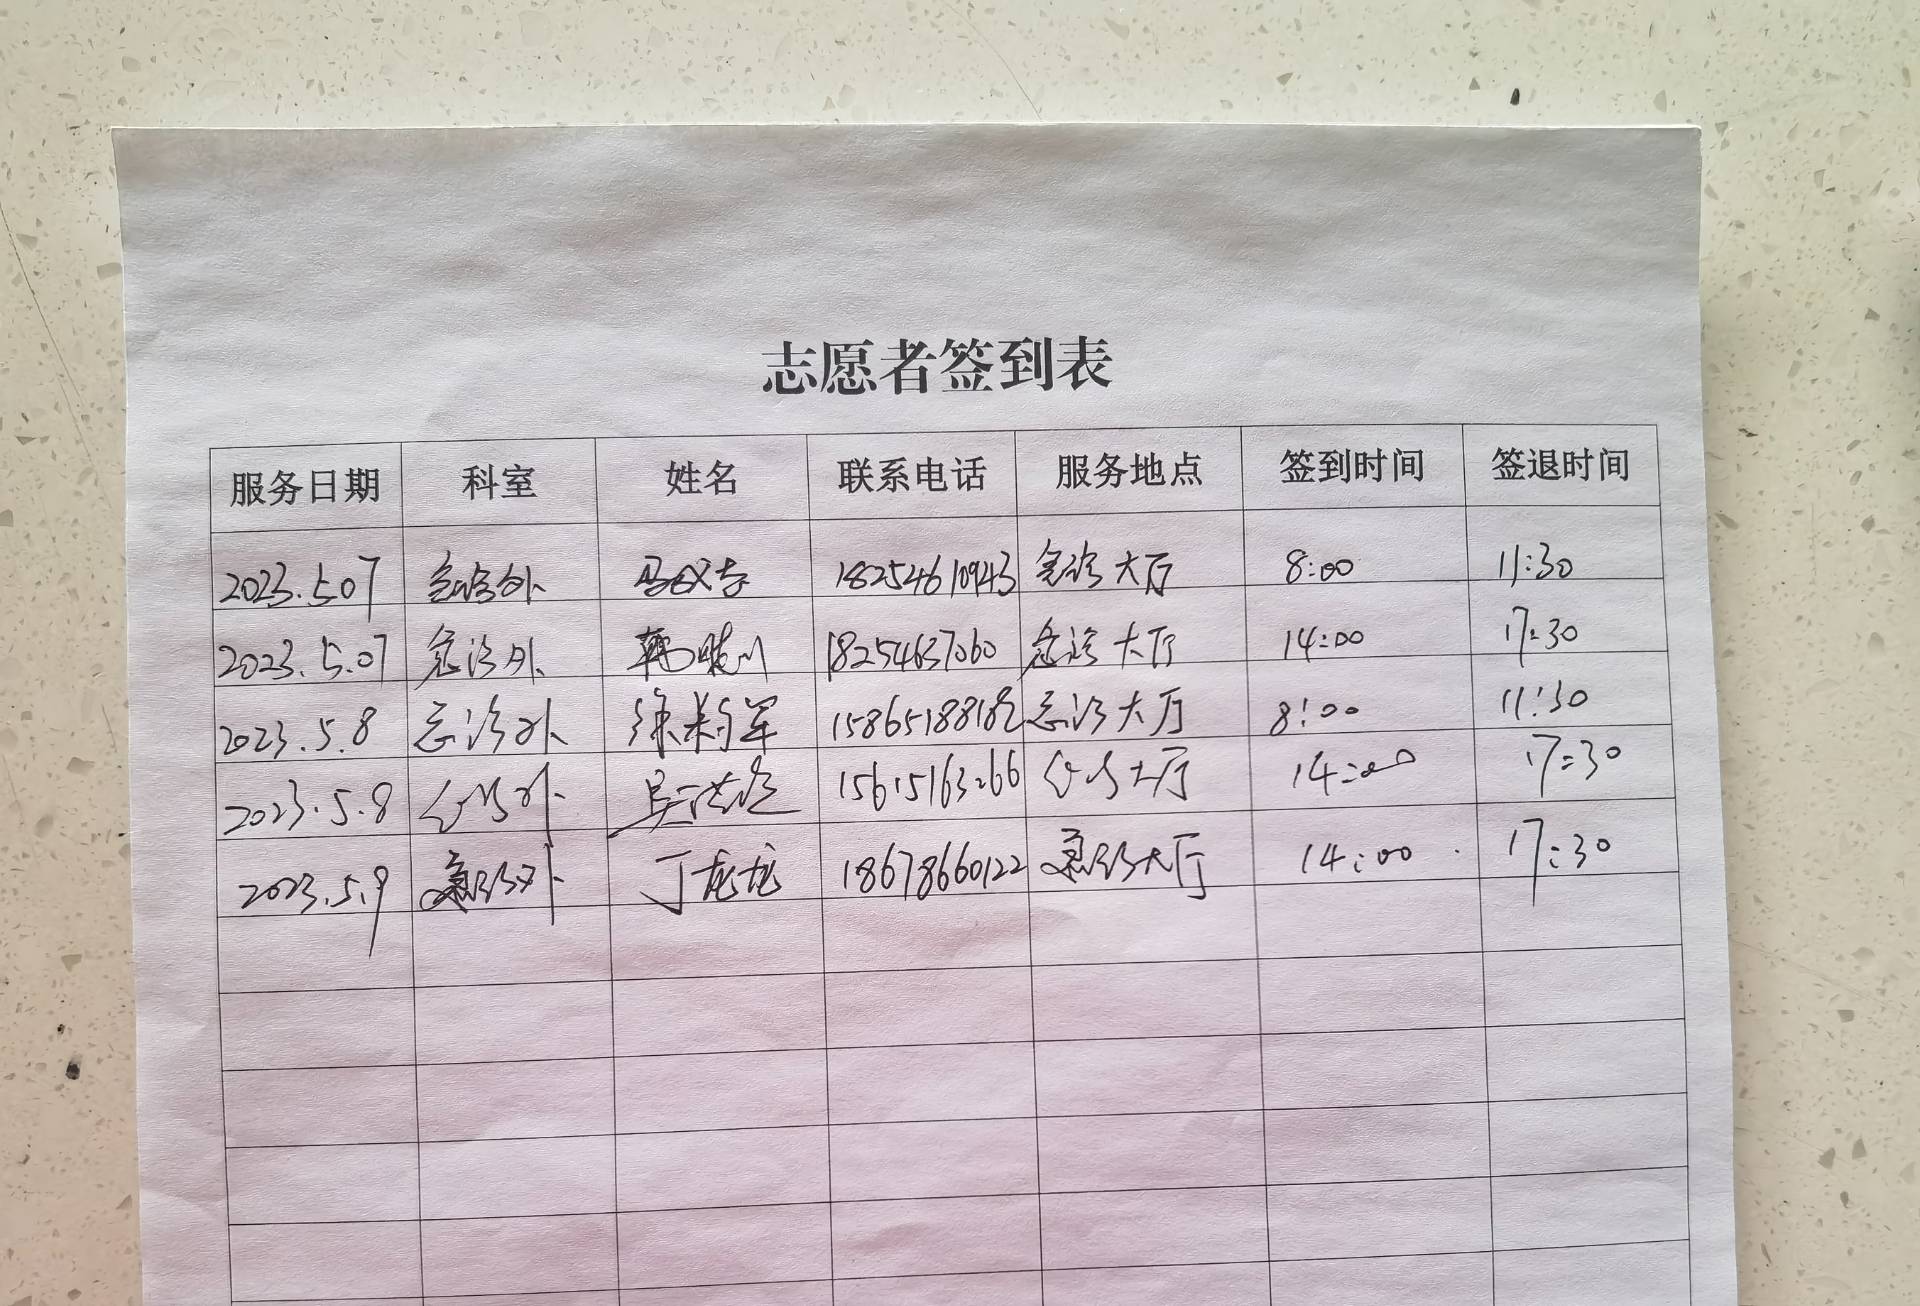 志愿者签到表
服务日期 科室 姓名 联系电话 服务地点 签到时间 签退时间
2023.5.07 急诊外 18254610943 急诊大厅 8:00 11:30
2023.5.07 急诊外 韩晓川 18254637060 急诊大厅 14:00 17:30
2023.5.8 急诊外 急诊大厅 8:00 11:30
2023.5.8 急诊外 15615163266 急诊大厅 14:00 17:30
2023.5.9 急诊外 丁龙龙 18678660122 急诊大厅 14:00 17:30